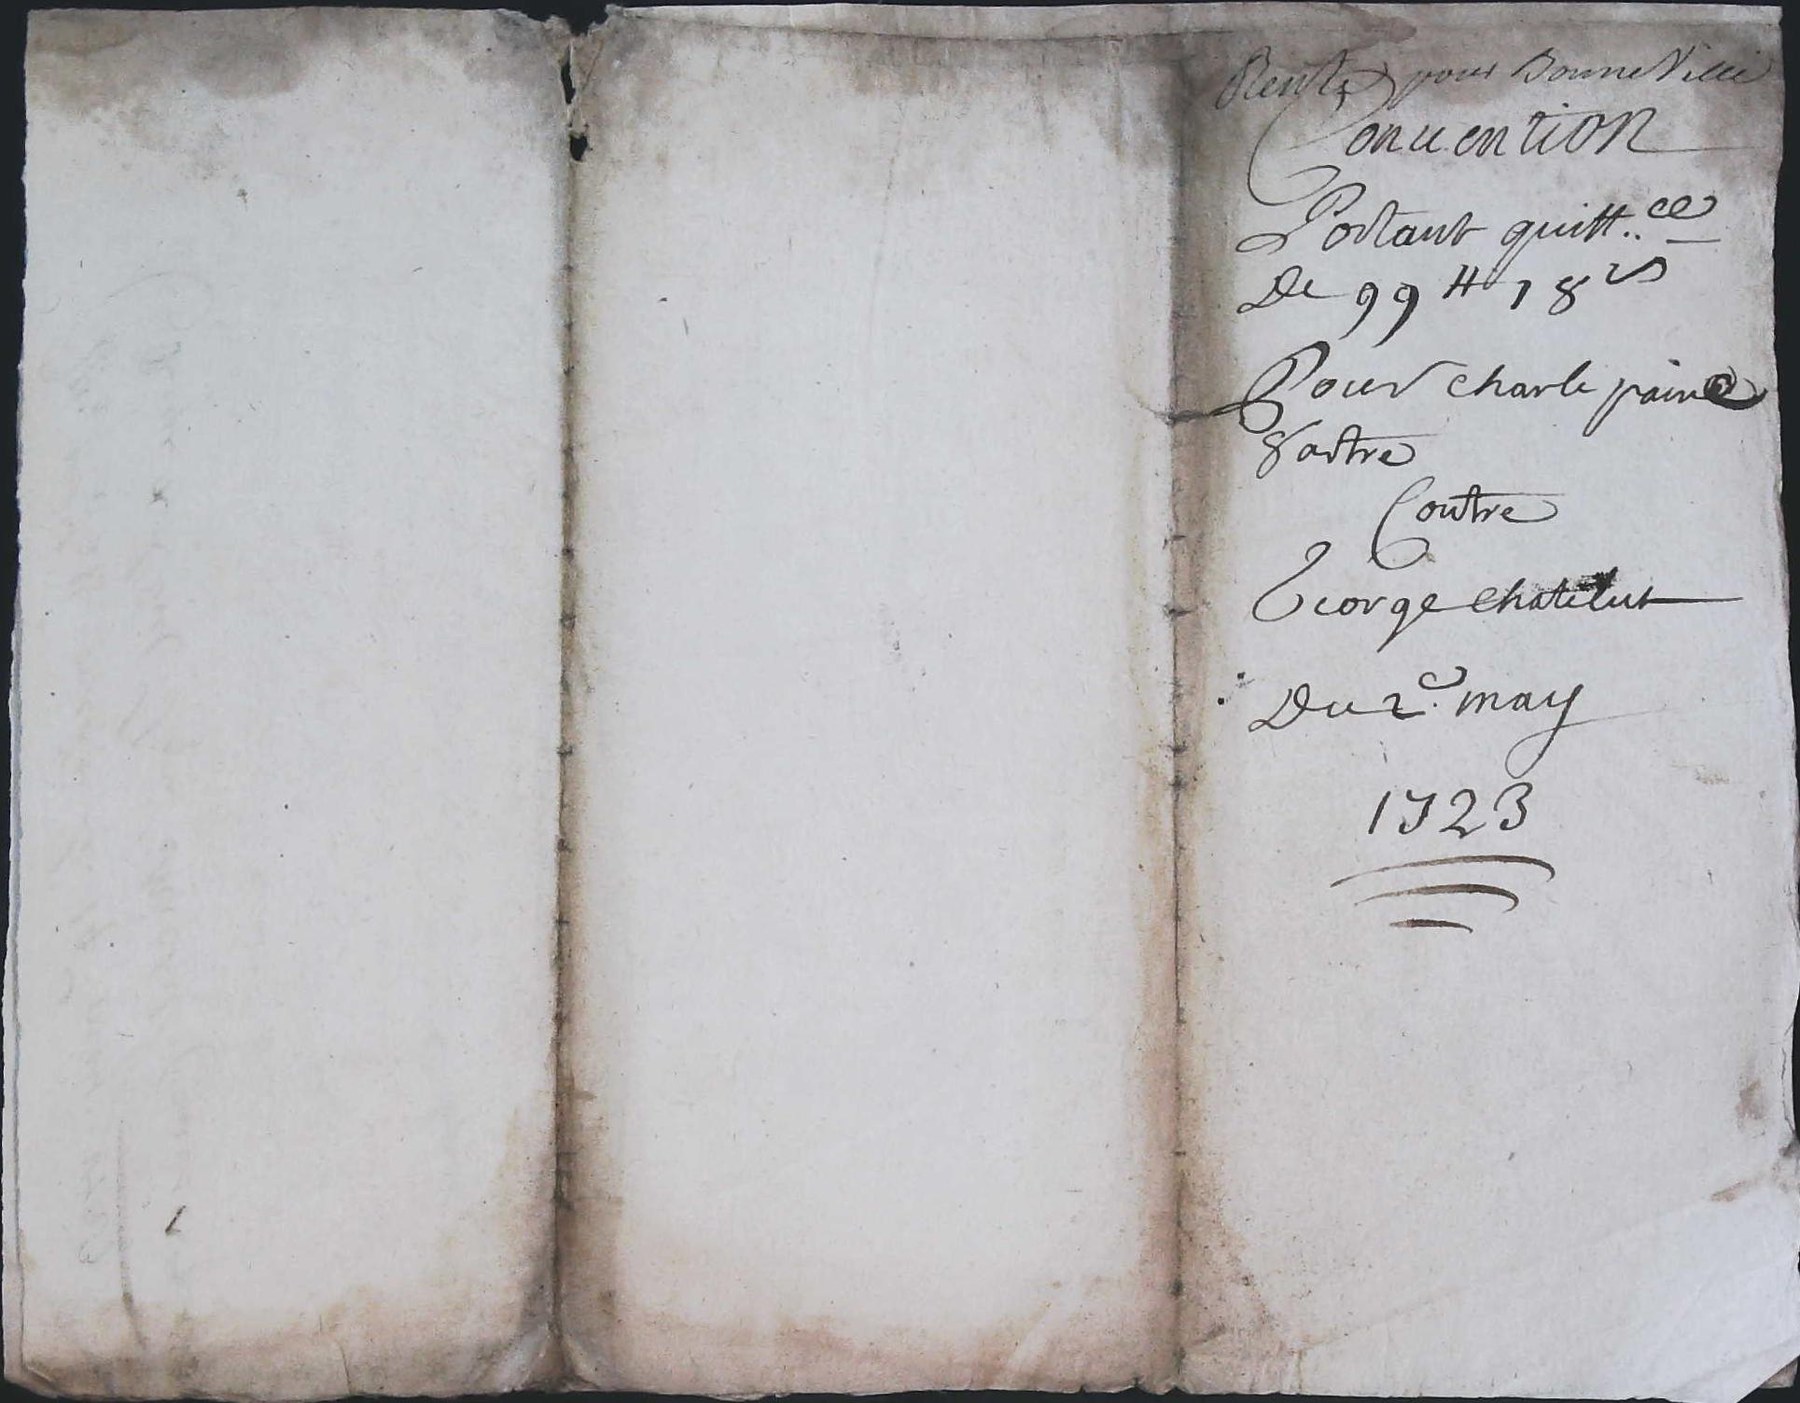 Rente pour Bonne Ville
Convention
Portant quitt..ce
De 99 ₶ 18 rs
Pour charle paine
& autre
Contre
George chatelut
Du 2e. may
1723